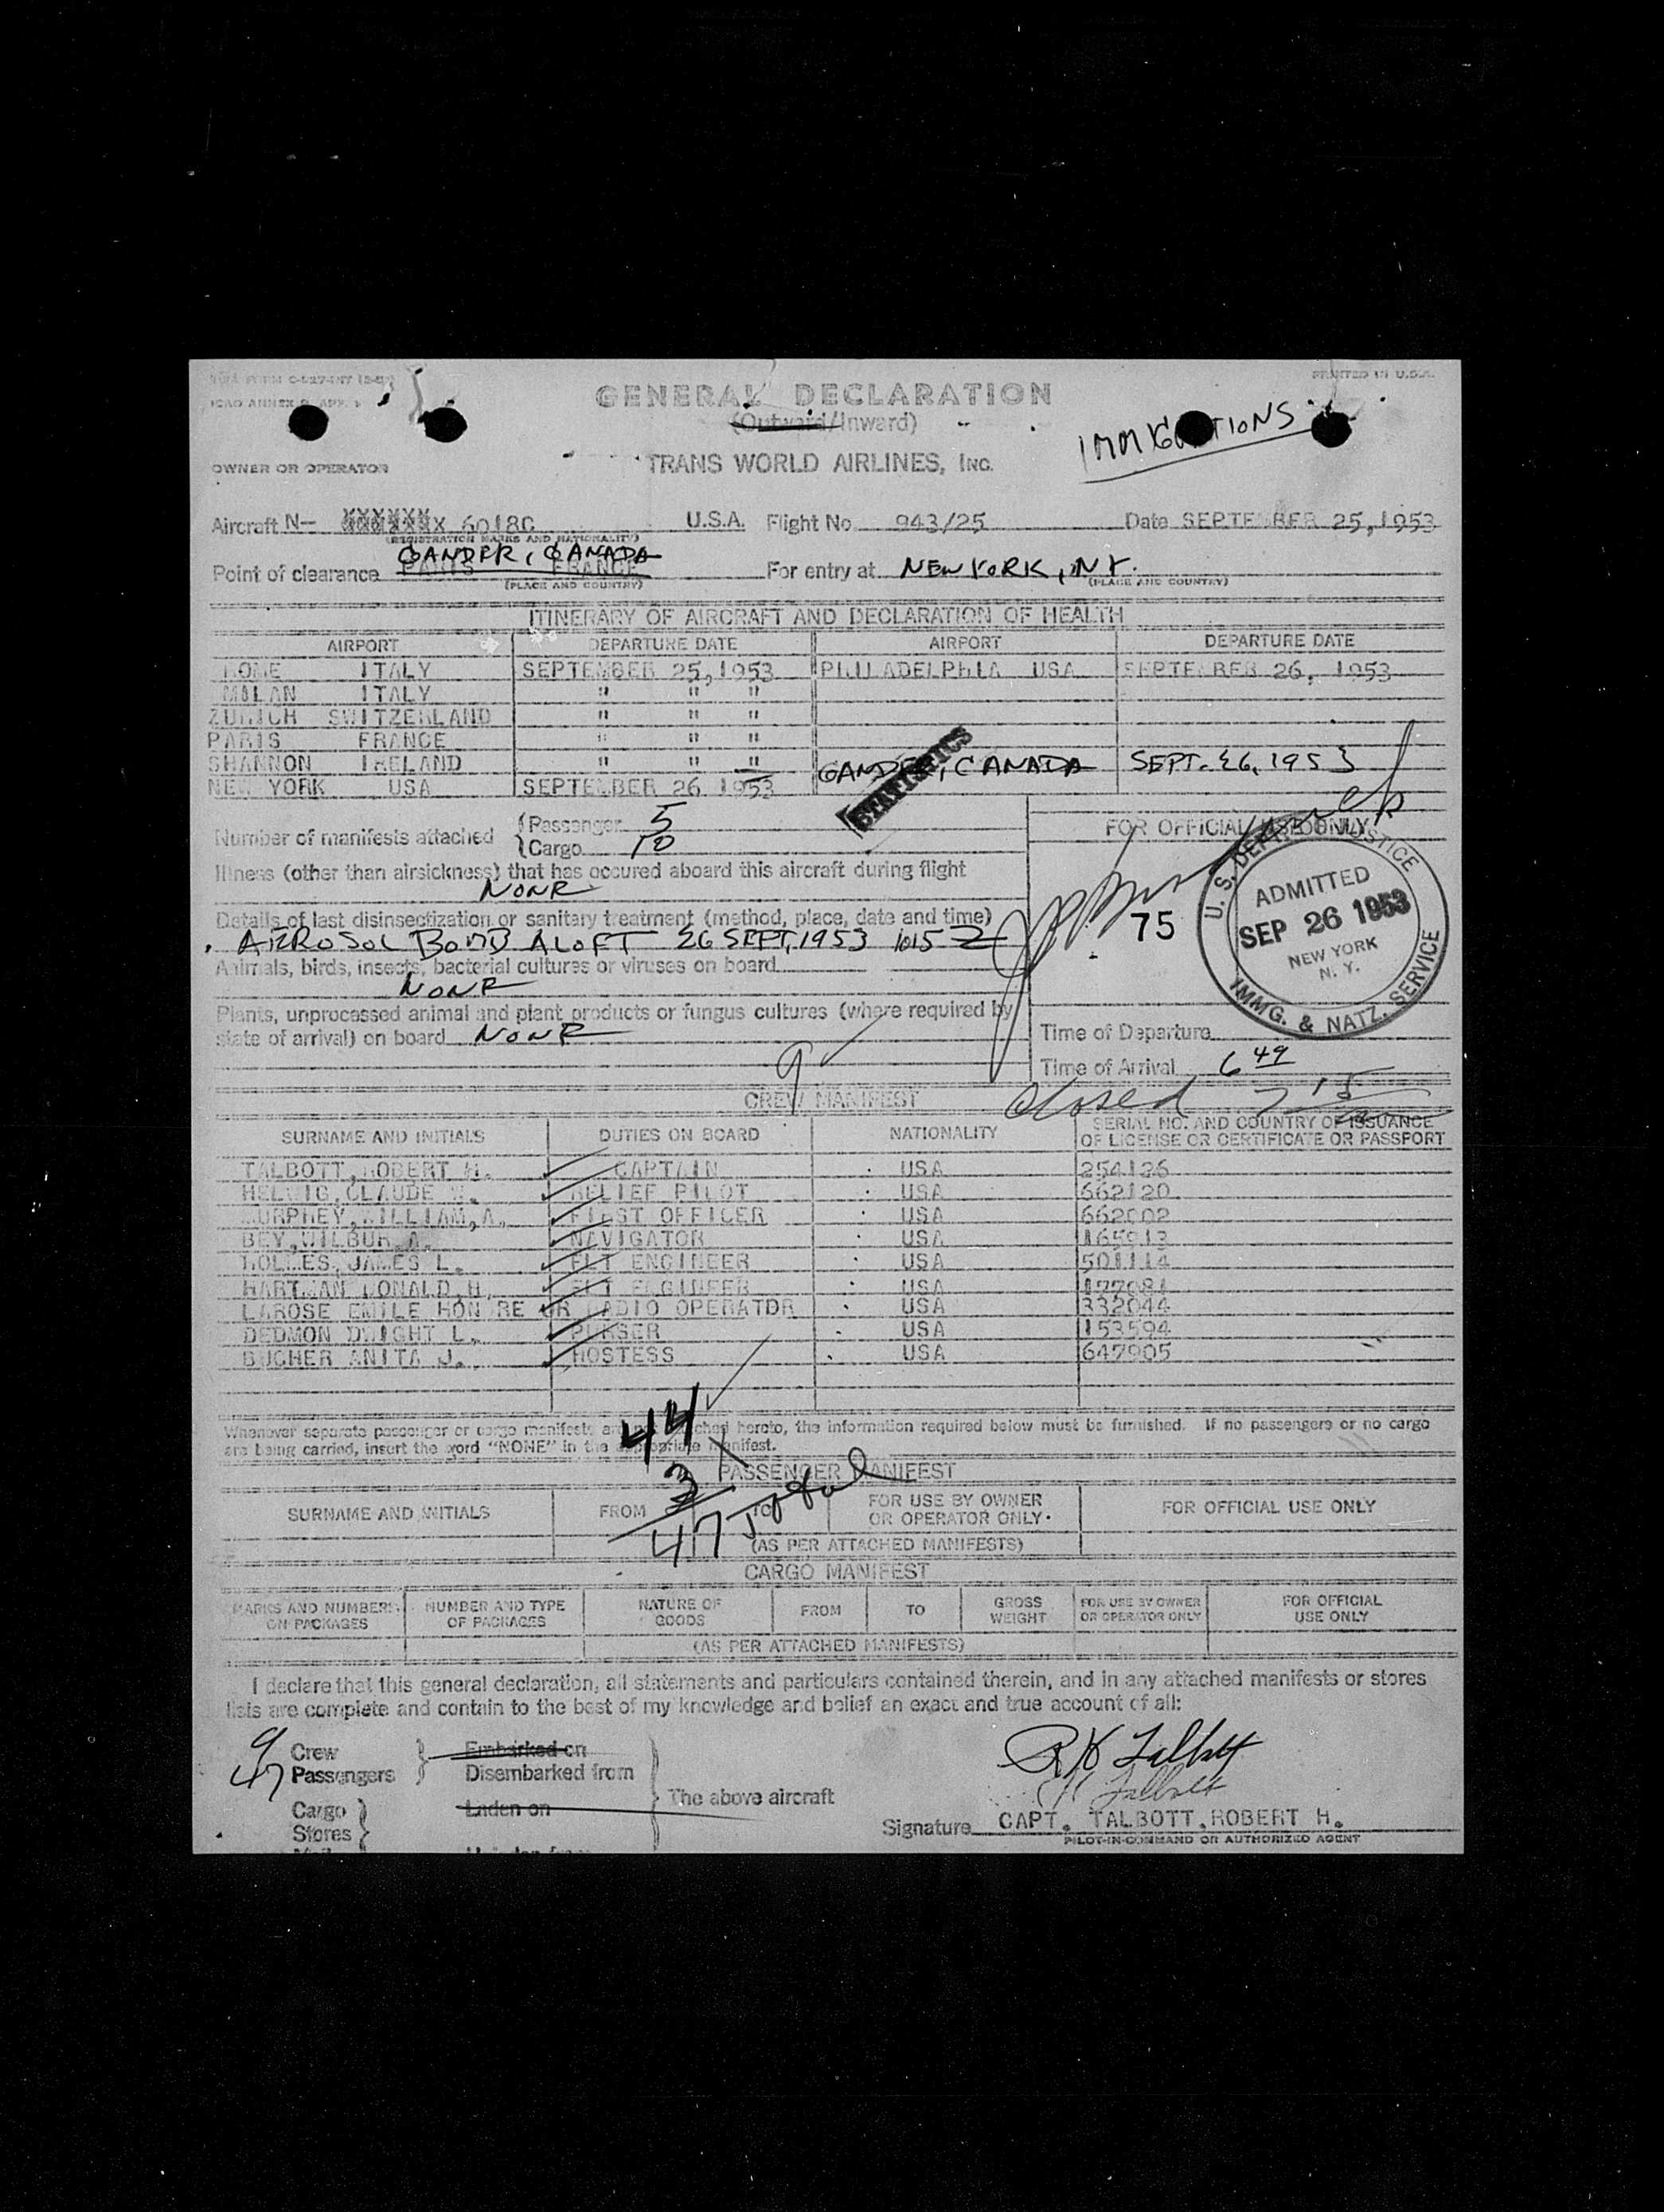 GENERAL DECLARATION
PRINTED IN U.S.A.
ICAO ANNEX 9, APP. 1
(Outward/Inward)
OWNER OR OPERATOR
TRANS WORLD AIRLINES, INC.
Aircraft N- 6018C U.S.A. Flight No 943/25 Date SEPTEMBER 25, 1953
(REGISTRATION MARKS AND NATIONALITY)
GANDER, CANADA
Point of clearance PARIS FRANCE For entry at NEW YORK, NY.
(PLACE AND COUNTRY) (PLACE AND COUNTRY)
ITINERARY OF AIRCRAFT AND DECLARATION OF HEALTH
AIRPORT DEPARTURE DATE AIRPORT DEPARTURE DATE
ROME ITALY SEPTEMBER 25, 1953 PHILADELPHIA USA SEPTEMBER 26, 1953
MILAN ITALY " " "
ZURICH SWITZERLAND " " "
PARIS FRANCE " " "
SHANNON IRELAND " " " GANDER, CANADA SEPT. 26, 1953
NEW YORK USA SEPTEMBER 26 1953
STATISTICS
Number of manifests attached
(Passenger 5
(Cargo 10
FOR OFFICIAL USE ONLY
Illness (other than airsickness) that has occured aboard this aircraft during flight
NONE
Details of last disinsectization or sanitary treatment (method, place, date and time)
AEROSOL BOMB ALOFT 26 SEPT, 1953 1015 Z
75
U. S. DEPT. OF JUSTICE
ADMITTED
SEP 26 1953
NEW YORK
N. Y.
IMMG. & NATZ. SERVICE
Animals, birds, insects, bacterial cultures or viruses on board
NONE
Plants, unprocessed animal and plant products or fungus cultures (where required by
state of arrival) on board NONE
Time of Departure
9
Time of Arrival 6 49
closed 7 15
CREW MANIFEST
SURNAME AND INITIALS DUTIES ON BOARD NATIONALITY SERIAL NO. AND COUNTRY OF ISSUANCE
OF LICENSE OR CERTIFICATE OR PASSPORT
TALBOTT, ROBERT H. CAPTAIN USA 254126
HELWIG, CLAUDE RELIEF PILOT USA 662120
MURPHEY, WILLIAM, A. FIRST OFFICER USA 662002
BEY, WILBUR A. NAVIGATOR USA
HOLMES, JAMES L. FLT ENGINEER USA 501114
HARTMAN DONALD, H. FLT ENGINEER USA 177081
LAROSE EMILE HON RE RADIO OPERATOR USA 332044
DEDMON DWIGHT L. PURSER USA 153594
BUCHER ANITA J. HOSTESS USA 647905
Whenever separate passenger or cargo manifests are not attached hereto, the information required below must be furnished. If no passengers or no cargo
are being carried, insert the word "NONE" in the appropriate manifest.
44
3
47 Total
PASSENGER MANIFEST
SURNAME AND INITIALS FROM TO FOR USE BY OWNER
OR OPERATOR ONLY FOR OFFICIAL USE ONLY
(AS PER ATTACHED MANIFESTS)
CARGO MANIFEST
MARKS AND NUMBERS
ON PACKAGES NUMBER AND TYPE
OF PACKAGES NATURE OF
GOODS FROM TO GROSS
WEIGHT FOR USE BY OWNER
OR OPERATOR ONLY FOR OFFICIAL
USE ONLY
(AS PER ATTACHED MANIFESTS)
I declare that this general declaration, all statements and particulars contained therein, and in any attached manifests or stores
lists are complete and contain to the best of my knowledge and belief an exact and true account of all:
9 Crew Embarked on
47 Passengers Disembarked from
The above aircraft
Cargo Laden on
Stores
R H Talbott
Signature CAPT. TALBOTT, ROBERT H.
PILOT-IN-COMMAND OR AUTHORIZED AGENT